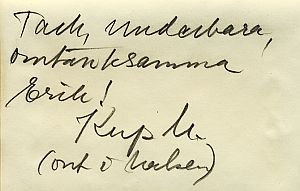 Tack, underbara,
omtänksamma
Erik!
(ont i halsen)